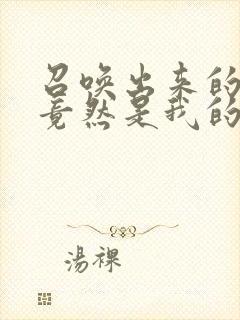 召唤出来的
竟然是我的
湯裸